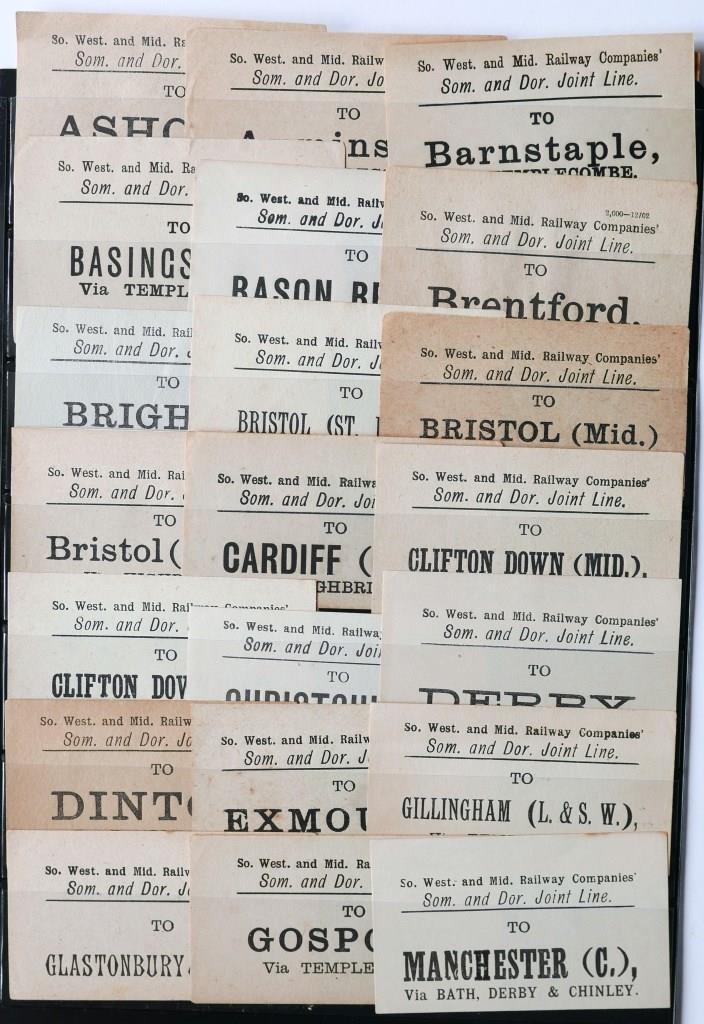 So. West. and Mid. Ra
Som. and Dor.
TO
ASHC
So. West. and Mid. Railway Compan
Som. and Dor. Jo
TO
So. West. and Mid. Railway Companies'
Som. and Dor. Joint Line.
TO
Barnstaple,
TEMPLECOMBE.
So. West. and Mid. Ra
Som. and Dor.
TO
BASINGS
Via TEMPL
So. West. and Mid. Railw
Som. and Dor. J
TO
BASON B
2,000—12/02
So. West. and Mid. Railway Companies'
Som. and Dor. Joint Line.
TO
Brentford,
So. West. and Mid. Rai
Som. and Dor. J
TO
BRIGH
So. West. and Mid. Railw
Som. and Dor. J
TO
BRISTOL (ST.
So. West. and Mid. Railway Companies'
Som. and Dor. Joint Line.
TO
BRISTOL (Mid.)
So. West. and Mid. Rai
Som. and Dor.
TO
Bristol (
So. West. and Mid. Railw
Som. and Dor. Joi
TO
CARDIFF (
GHBRI
So. West. and Mid. Railway Companies'
Som. and Dor. Joint Line.
TO
CLIFTON DOWN (MID.),
So. West. and Mid. Railway Companies'
Som. and Dor.
TO
CLIFTON DOW
So. West. and Mid. Railwa
Som. and Dor. Joi
TO
So. West. and Mid. Railway Companies'
Som. and Dor. Joint Line.
TO
DERBY
So. West. and Mid. Railw
Som. and Dor. Jo
TO
DINTO
So. West. and Mid. Railw
Som. and Dor. J
TO
EXMOU
So. West. and Mid. Railway Companies'
Som. and Dor. Joint Line.
TO
GILLINGHAM (L. & S. W.),
So. West. and Mid. Railw
Som. and Dor. J
TO
GLASTONBURY
So. West. and Mid. Ra
Som. and Dor.
TO
GOSPO
Via TEMPLE
So. West. and Mid. Railway Companies'
Som. and Dor. Joint Line.
TO
MANCHESTER (C.),
Via BATH, DERBY & CHINLEY.